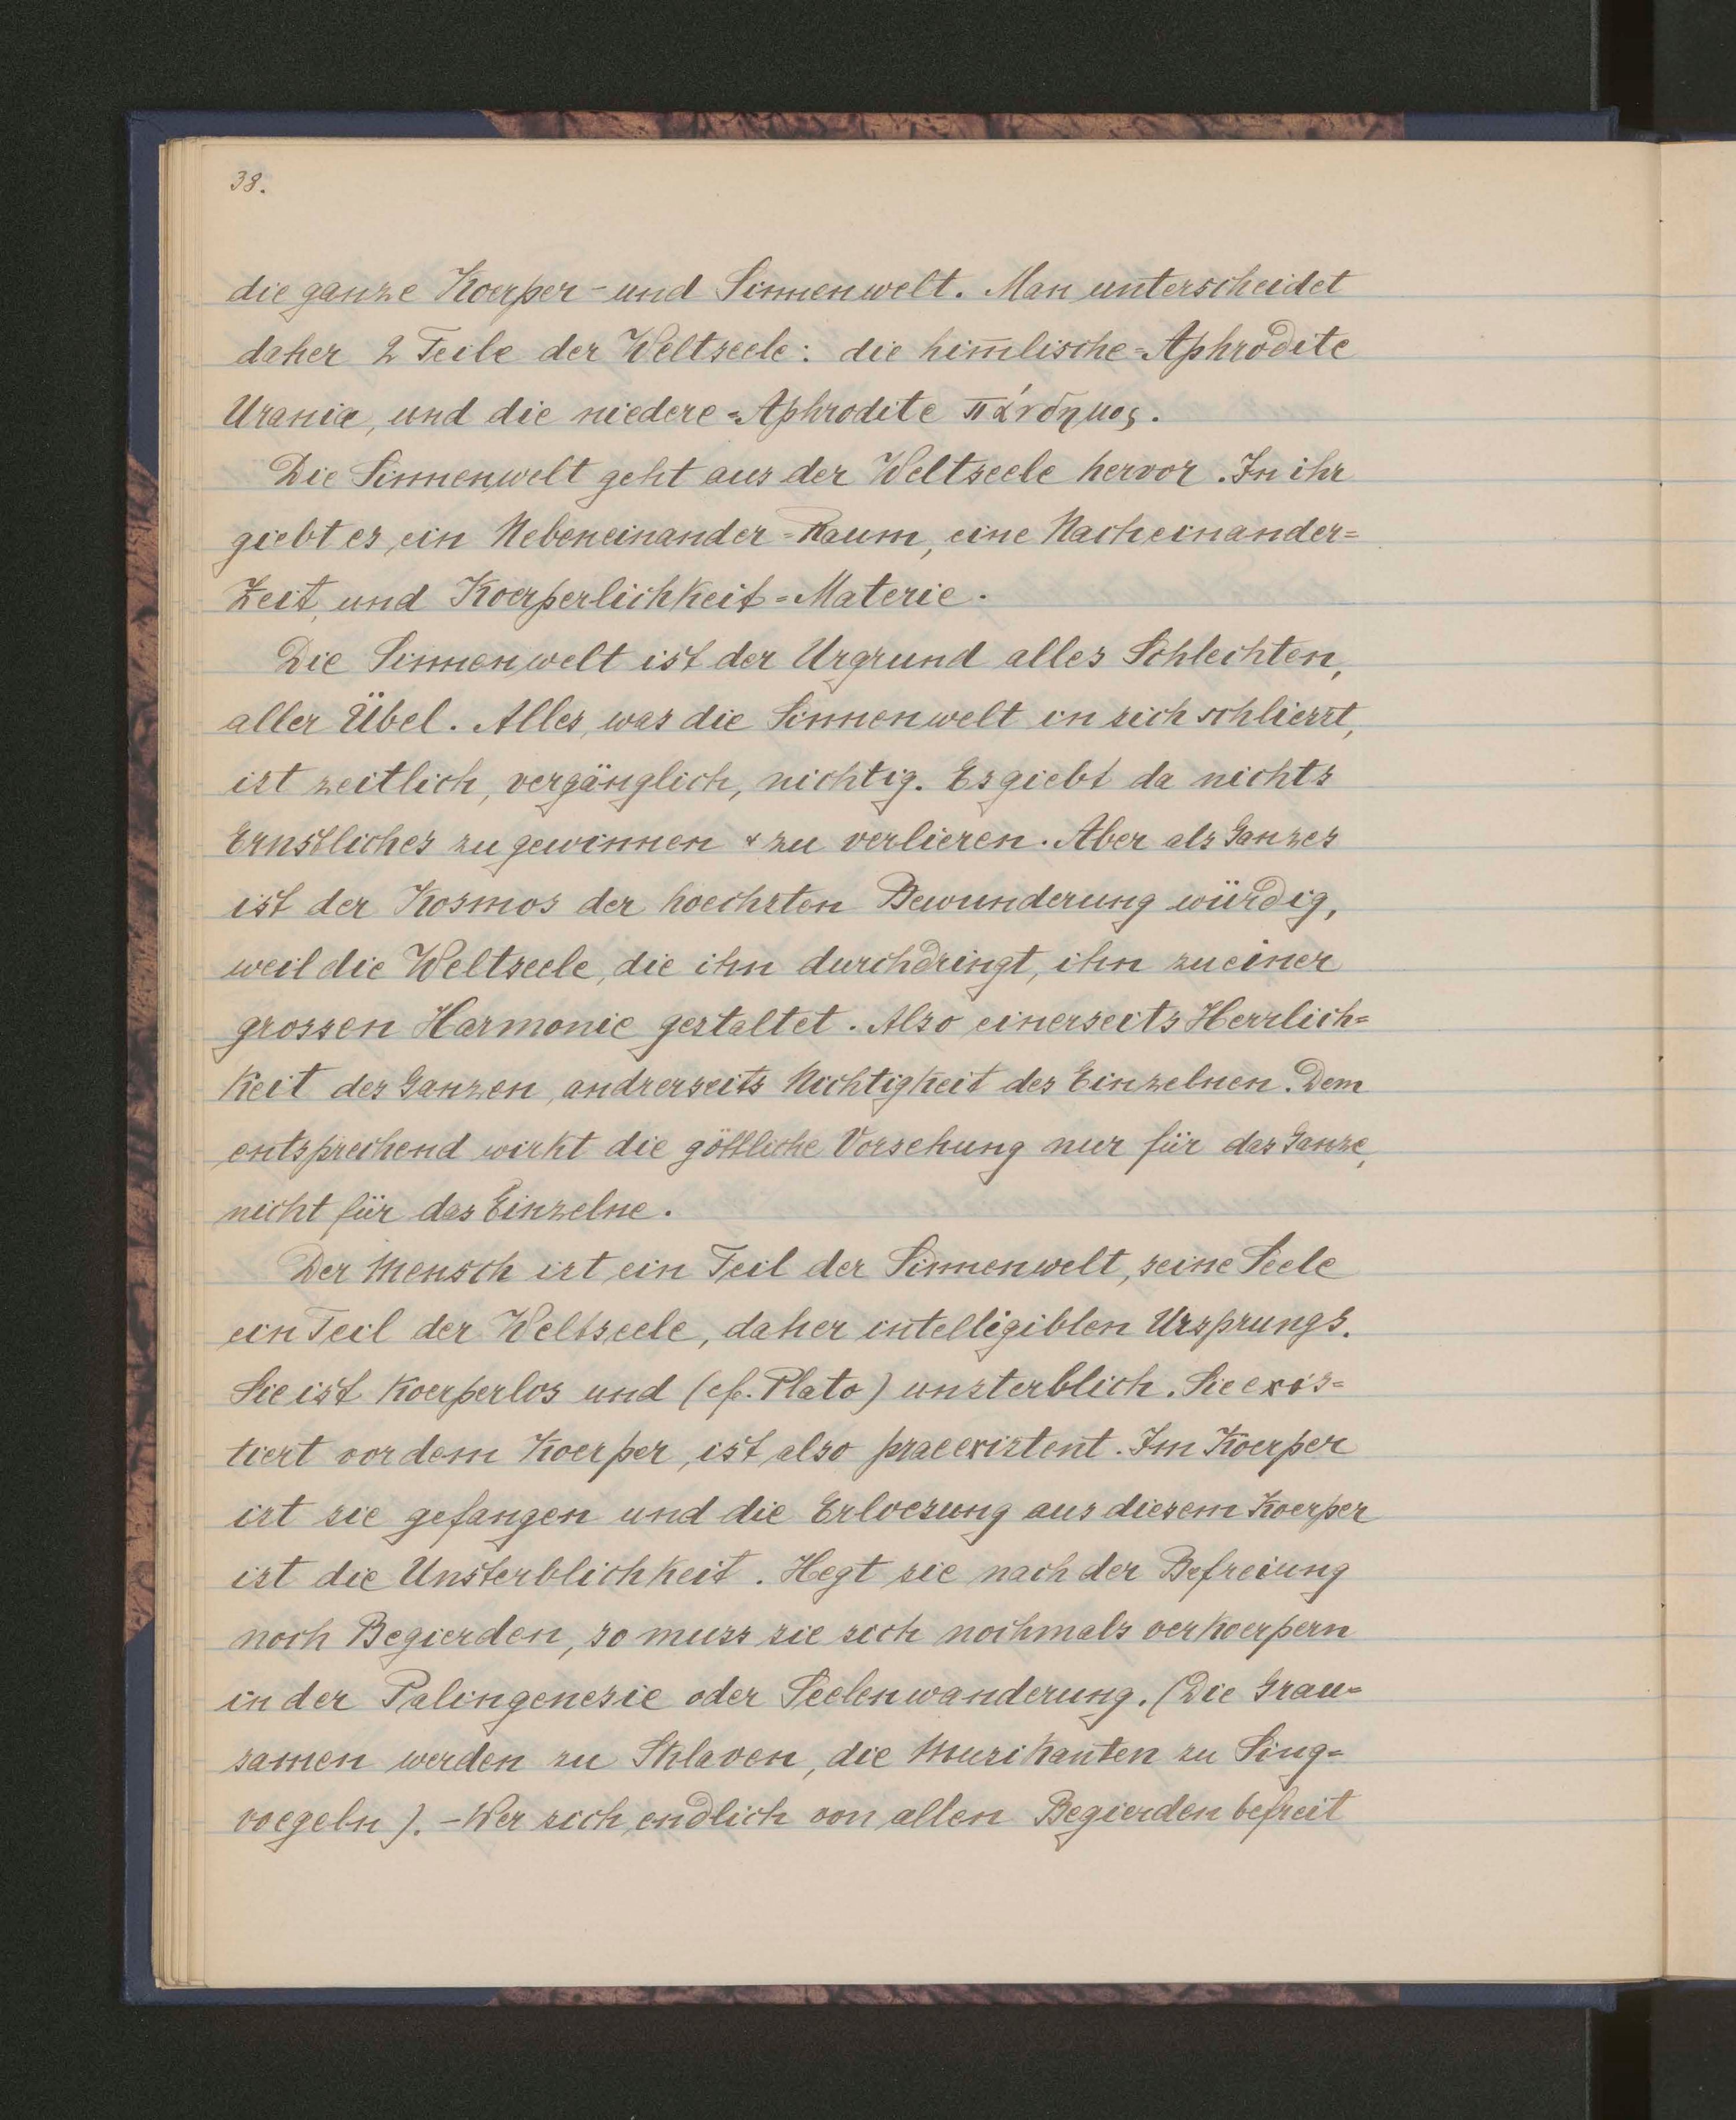 38.
die ganze Koerper- und Sinnenwelt. Man unterscheidet
daher 2 Teile der Weltseele: die him̅lische=Aphrodite
Urania, und die niedere=Aphrodite πάνδημος.
Die Sinnenwelt geht aus der Weltseele hervor. In ihr
giebt es ein Nebeneinander=Raum, eine Nacheinander=
Zeit, und Koerperlichkeit=Materie.
Die Sinnenwelt ist der Urgrund alles Schlechten,
aller Übel. Alles, was die Sinnenwelt in sich schliesst,
ist zeitlich, vergänglich, nichtig. Es giebt da nichts
Ernstliches zu gewinnen & zu verlieren. Aber als Ganzes
ist der Kosmos der hoechsten Bewunderung würdig,
weil die Weltseele, die ihn durchdringt, ihn zu einer
grossen Harmonie gestaltet. Also einerseits Herrlich=
keit des Ganzen, andrerseits Nichtigkeit des Einzelnen. Dem
entsprechend wirkt die göttliche Vorsehung nur für das Ganze,
nicht für das Einzelne.
Der Mensch ist ein Teil der Sinnenwelt, seine Seele
ein Teil der Weltseele, daher intelligiblen Ursprungs.
Sie ist koerperlos und (cf. Plato) unsterblich. Sie exis=
tiert vor dem Koerper, ist also praeexistent. Im Koerper
ist sie gefangen und die Erloesung aus diesem Koerper
ist die Unsterblichkeit. Hegt sie nach der Befreiung
noch Begierden, so muss sie sich nochmals verkoerpern
in der Palingenesie oder Seelenwanderung. (Die Grau=
samen werden zu Sklaven, die Musikanten zu Sing=
voegeln). - Wer sich endlich von allen Begierden befreit